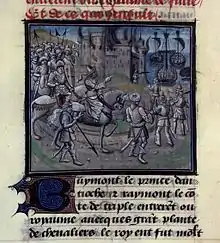 Et de ce
Buymont le prince dan
tioche & raymont le cō
te de triple entrerēt ou
royaume auecques grāt plante
de cheualiers le roy en fut molt